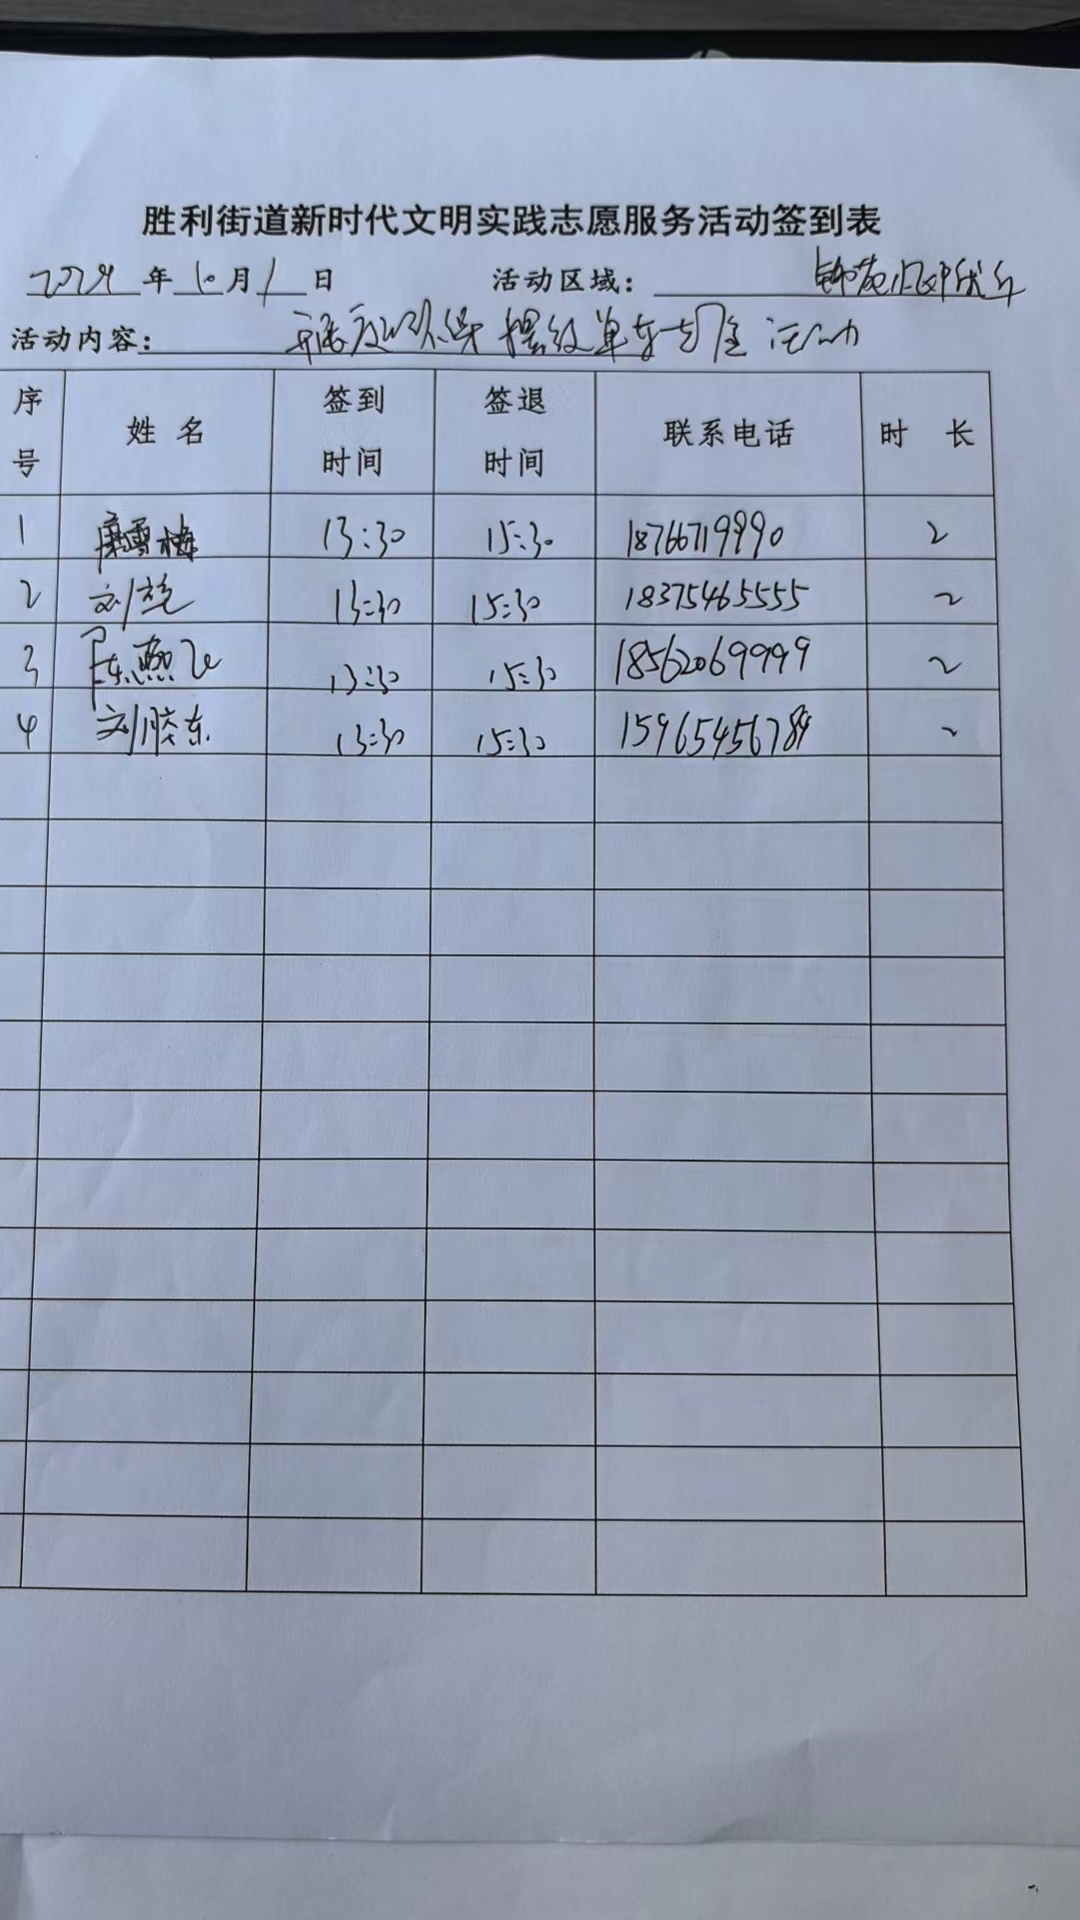 胜利街道新时代文明实践志愿服务活动签到表
2024年10月1日 活动区域：
活动内容： 摆放单车 活动
序号 姓名 签到时间 签退时间 联系电话 时 长
1 雪梅 13:30 15:30 18766719990 2
2 刘 13:30 15:30 18375465555 2
3 陈燕飞 13:30 15:30 18562069999 2
4 刘胶东 13:30 15:30 15965456789 2